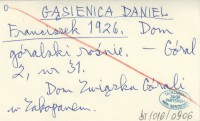 GĄSIENICA DANIEL
Franciszek 1926. Dom
góralski rośnie. — Góral
2, nr 31.
Dom Związku Górali
w Zakopanem.